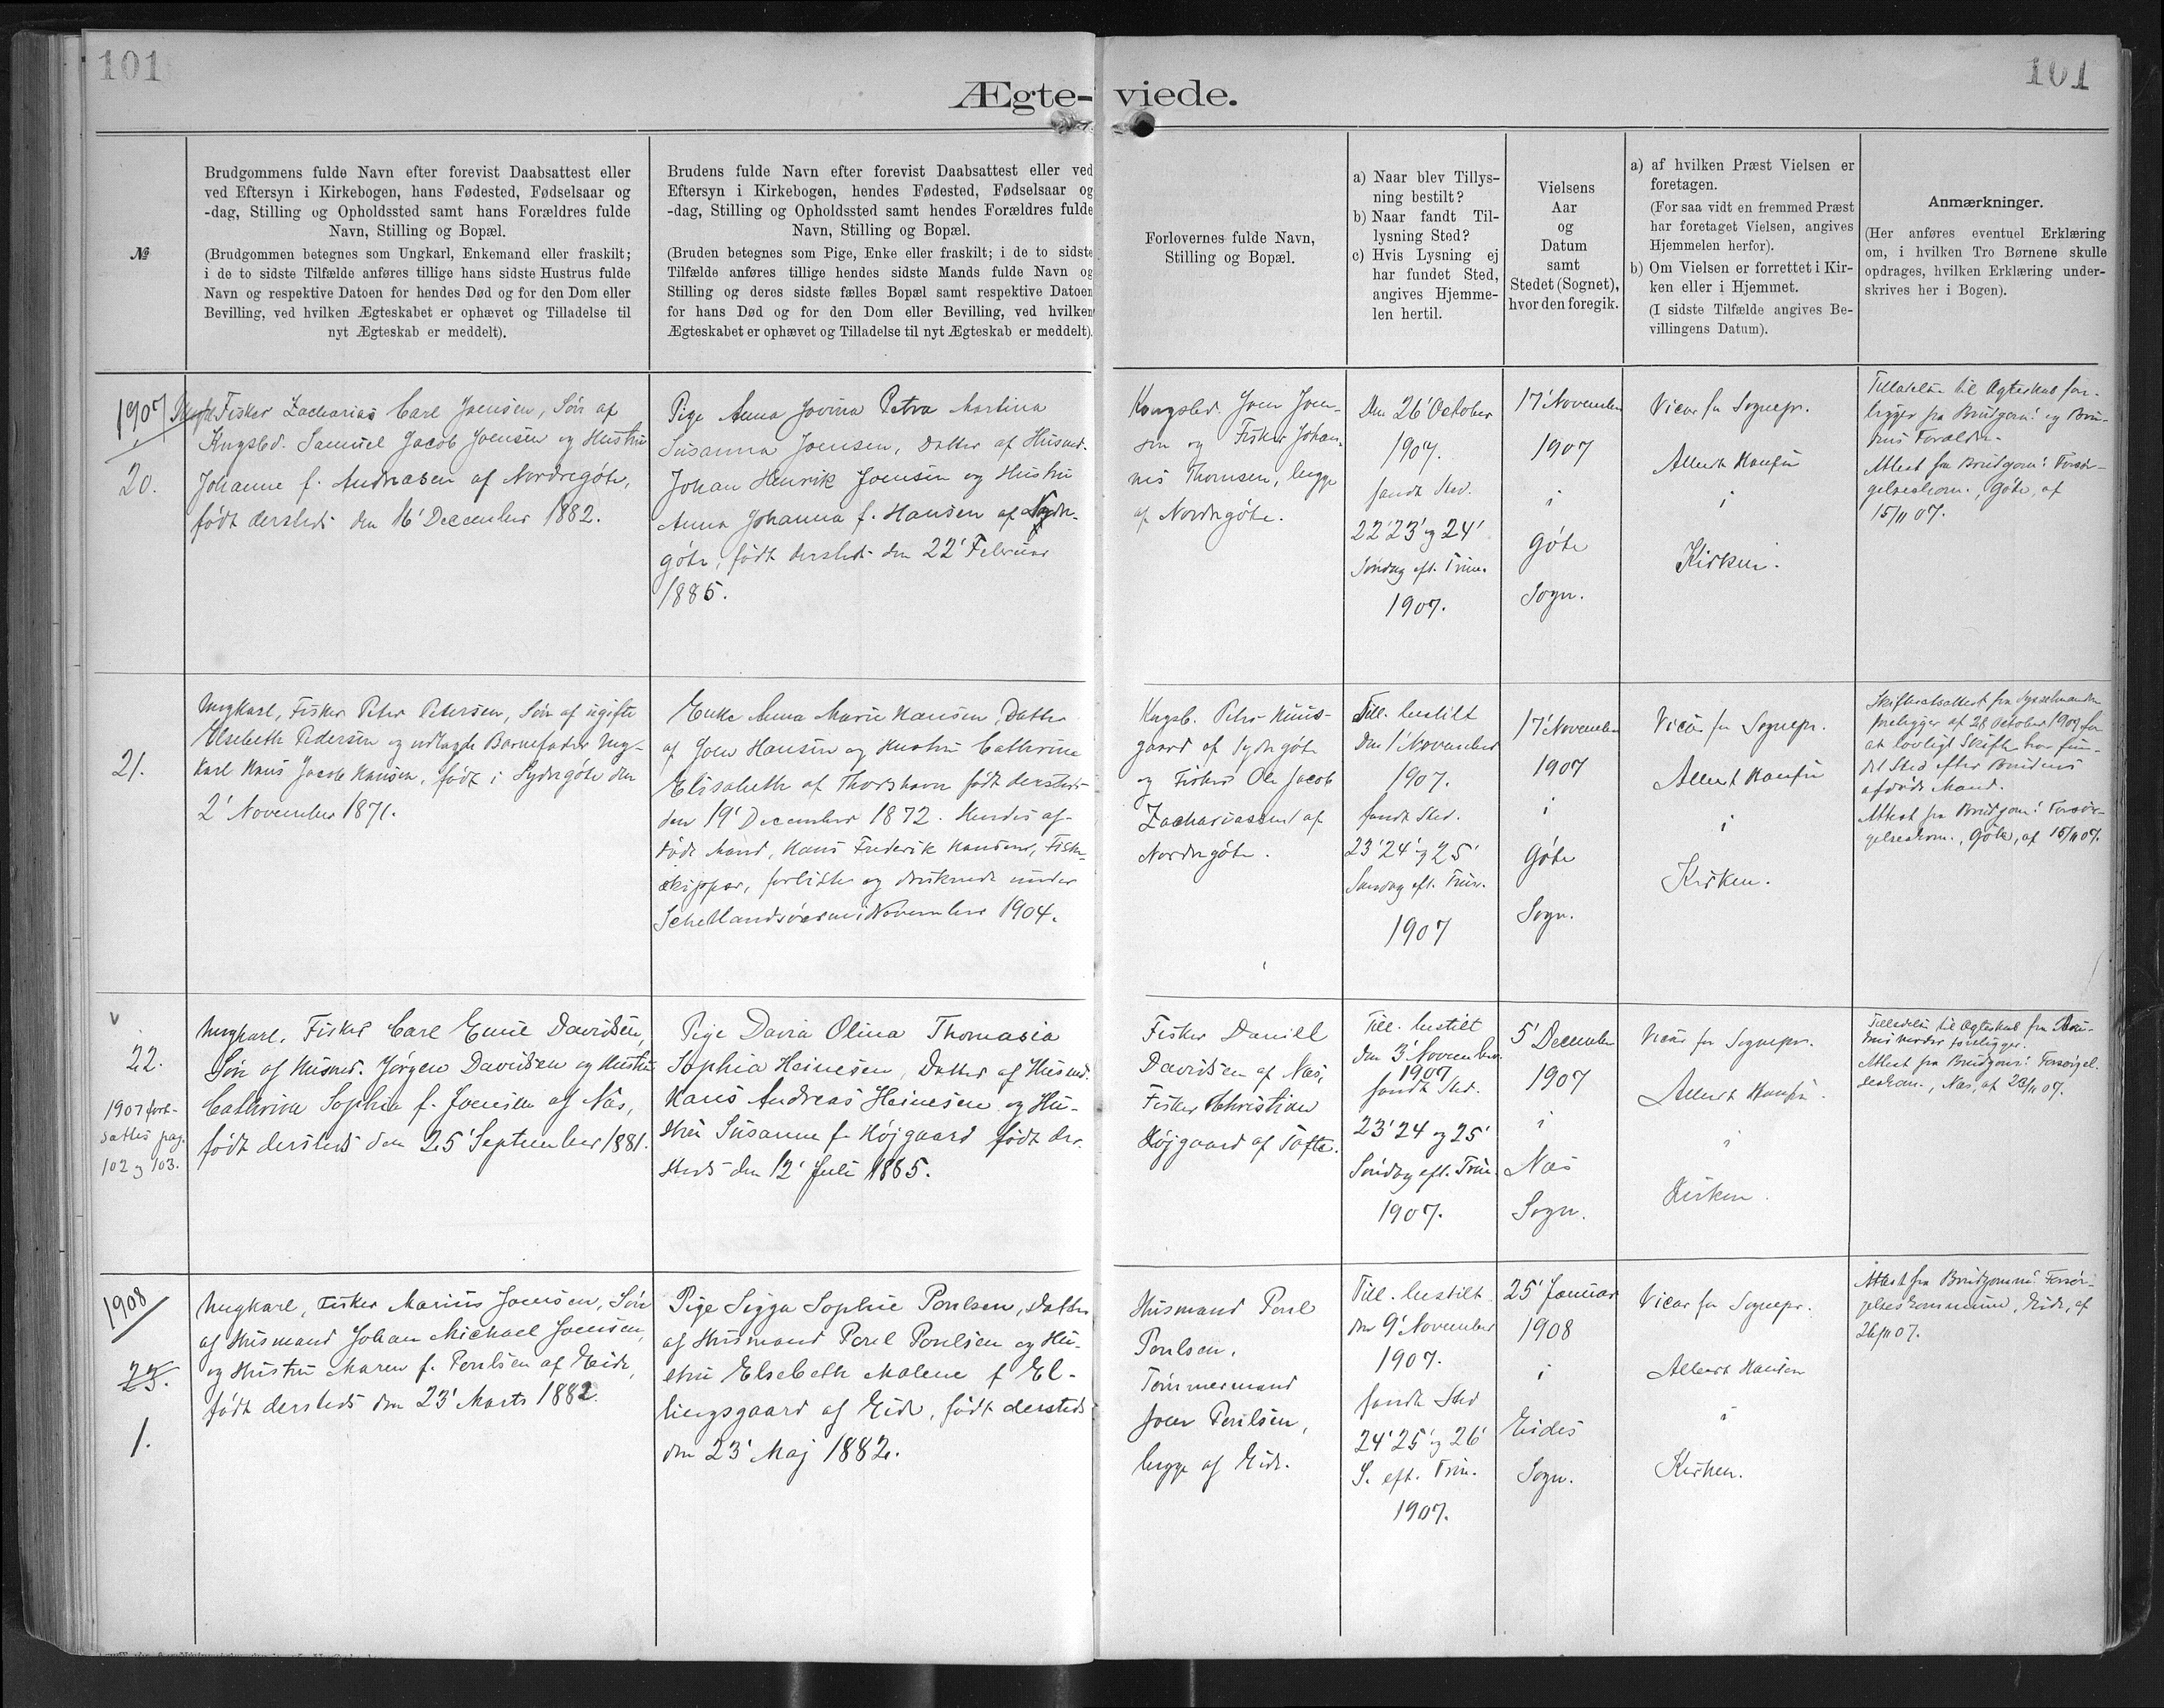 101
101
Ægte- viede.
№
Brudgommens fulde Navn efter forevist Daabsattest eller
ved Eftersyn i Kirkebogen, hans Fødested, Fødselsaar og
-dag, Stilling og Opholdssted samt hans Forældres fulde
Navn, Stilling og Bopæl.
(Brudgommen betegnes som Ungkarl, Enkemand eller fraskilt;
i de to sidste Tilfælde anføres tillige hans sidste Hustrus fulde
Navn og respektive Datoen for hendes Død og for den Dom eller
Bevilling, ved hvilken Ægteskabet er ophævet og Tilladelse til
nyt Ægteskab er meddelt).
Brudens fulde Navn efter forevist Daabsattest eller ved
Eftersyn i Kirkebogen, hendes Fødested, Fødselsaar og
-dag, Stilling og Opholdssted samt hendes Forældres fulde
Navn, Stilling og Bopæl.
(Bruden betegnes som Pige, Enke eller fraskilt; i de to sidste
Tilfælde anføres tillige hendes sidste Mands fulde Navn og
Stilling og deres sidste fælles Bopæl samt respektive Datoen
for hans Død og for den Dom eller Bevilling, ved hvilken
Ægteskabet er ophævet og Tilladelse til nyt Ægteskab er meddelt).
Forlovernes fulde Navn,
Stilling og Bopæl.
a) Naar blev Tillys-
ning bestilt?
b) Naar fandt Til-
lysning Sted?
c) Hvis Lysning ej
har fundet Sted,
angives Hjemme-
len hertil.
Vielsens
Aar
og
Datum
samt
Stedet (Sognet),
hvor den foregik.
a) af hvilken Præst Vielsen er
foretagen.
(For saa vidt en fremmed Præst
har foretaget Vielsen, angives
Hjemmelen herfor).
b) Om Vielsen er forrettet i Kir-
ken eller i Hjemmet.
(I sidste Tilfælde angives Be-
villingens Datum).
Anmærkninger.
(Her anføres eventuel Erklæring
om, i hvilken Tro Børnene skulle
opdrages, hvilken Erklæring under-
skrives her i Bogen).
1907
20.
Fisker Zacharias Carl Joensen, Søn af
Kngsbd. Samuel Jacob Joensen og Hustru
Johanne f. Andreasen af Nordregöte,
født dersteds den 16' December 1882.
Pige Anna Jovina Petra Martina
Susanna Joensen, Datter af Husmd.
Johan Henrik Joensen og Hustru
Anna Johanna f. Hansen af Nordr-
göte, født dersteds den 22' Februar
1885.
Kongsbd. Joen Joen-
sen og Fisker Johan-
nes Thomsen, begge
af Nordregöte.
Den 26' October
1907.
fandt Sted.
22' 23' og 24'
Søndag eft. Trin.
1907.
17' November
1907
i
Göte
Sogn.
Vicar for Sognepr.
Albert Hansen
i
Kirken.
Tilladelse til Ægteskab fore-
ligger fra Brudgom: og Bru-
dens Forældre.
Attest fra Brudgom: Forsør-
gelseskom., Göte, af
15/11 07.
21.
Ungkarl, Fisker Peter Petersen, Søn af ugifte
Elsebeth Pedersen og udlagde Barnefader Ung-
karl Hans Jacob Hansen, født i Sydregöte den
2' November 1871.
Enke Anna Marie Hansen, Datter
af Joen Hansen og Hustru Cathrine
Elisabeth af Thorshavn født dersteds
den 19' December 1872. Hendes af-
døde Mand, Hans Frederik Hansen, Fiske-
skipper, forliste og druknede under
Schetlandsöerne i November 1904.
Kngsb. Peter Kuus-
gaard af Sydregöte
og Fisker Ole Jacob
Zachariassen af
Nordregöte.
Till. bestilt
Den 1' November
1907.
fandt Sted.
23' 24' og 25'
Søndag eft. Trin.
1907
17' November
1907
i
Göte
Sogn.
Vicar for Sognepr.
Albert Hansen
i
Kirken.
Skifteretsattest fra Sysselmanden
foreligger af 28 October 1907 for
at lovligt Skifte har fun-
det Sted efter Brudens
afdøde Mand.
Attest fra Brudgom: Forsør-
gelseskom., Göte, af 15/11 07.
22.
1907 fort-
sættes pag.
102 og 103.
Ungkarl, Fisker Carl Emil Davidsen,
Søn af Husmd. Jörgen Davidsen og Hustru
Cathrina Sophia f. Joensen af Næs,
født dersteds den 25' September 1881.
Pige Davia Olina Thomasia
Sophia Heinesen, Datter af Husmd.
Hans Andreas Heinesen og Hu-
stru Susanne f. Höjgaard født der-
steds den 12' Juli 1885.
Fisker Daniel
Davidsen af Næs,
Fisker Christian
Höjgaard af Tofte.
Till. bestilt
den 3' November
1907
fandt Sted.
23' 24 og 25'
Søndag eft. Trin.
1907.
5' December
1907
i
Næs
Sogn.
Vicar for Sognepr.
Albert Hansen.
i
Kirken.
Tilladelse til Ægteskab fra Bru-
dens Moder foreligger.
Attest fra Brudgom: Forsørgel-
seskom., Næs, af 28/11 07.
1908
23.
1.
Ungkarl, Fisker Marius Joensen, Søn
af Husmand Johan Michael Joensen,
og Hustru Maren f. Poulsen af Eide,
født dersteds den 23' Marts 1882.
Pige Sigga Sophie Poulsen, Datter
af Husmand Poul Poulsen og Hu-
stru Elsebeth Malene f El-
lingsgaard af Eide, født dersteds
den 23' Maj 1882.
Husmand Poul
Poulsen,
Tömmermand
Joen Poulsen,
begge af Eide.
Till. bestilt
den 9' November
1907.
fandt Sted
24' 25' og 26'
S. eft. Trin.
1907.
25' Januar
1908
i
Eides
Sogn.
Vicar for Sognepr.
Albert Hansen
i
Kirken.
Attest fra Brudgommens Forsør-
gelseskommune, Eide, af
26/11 07.